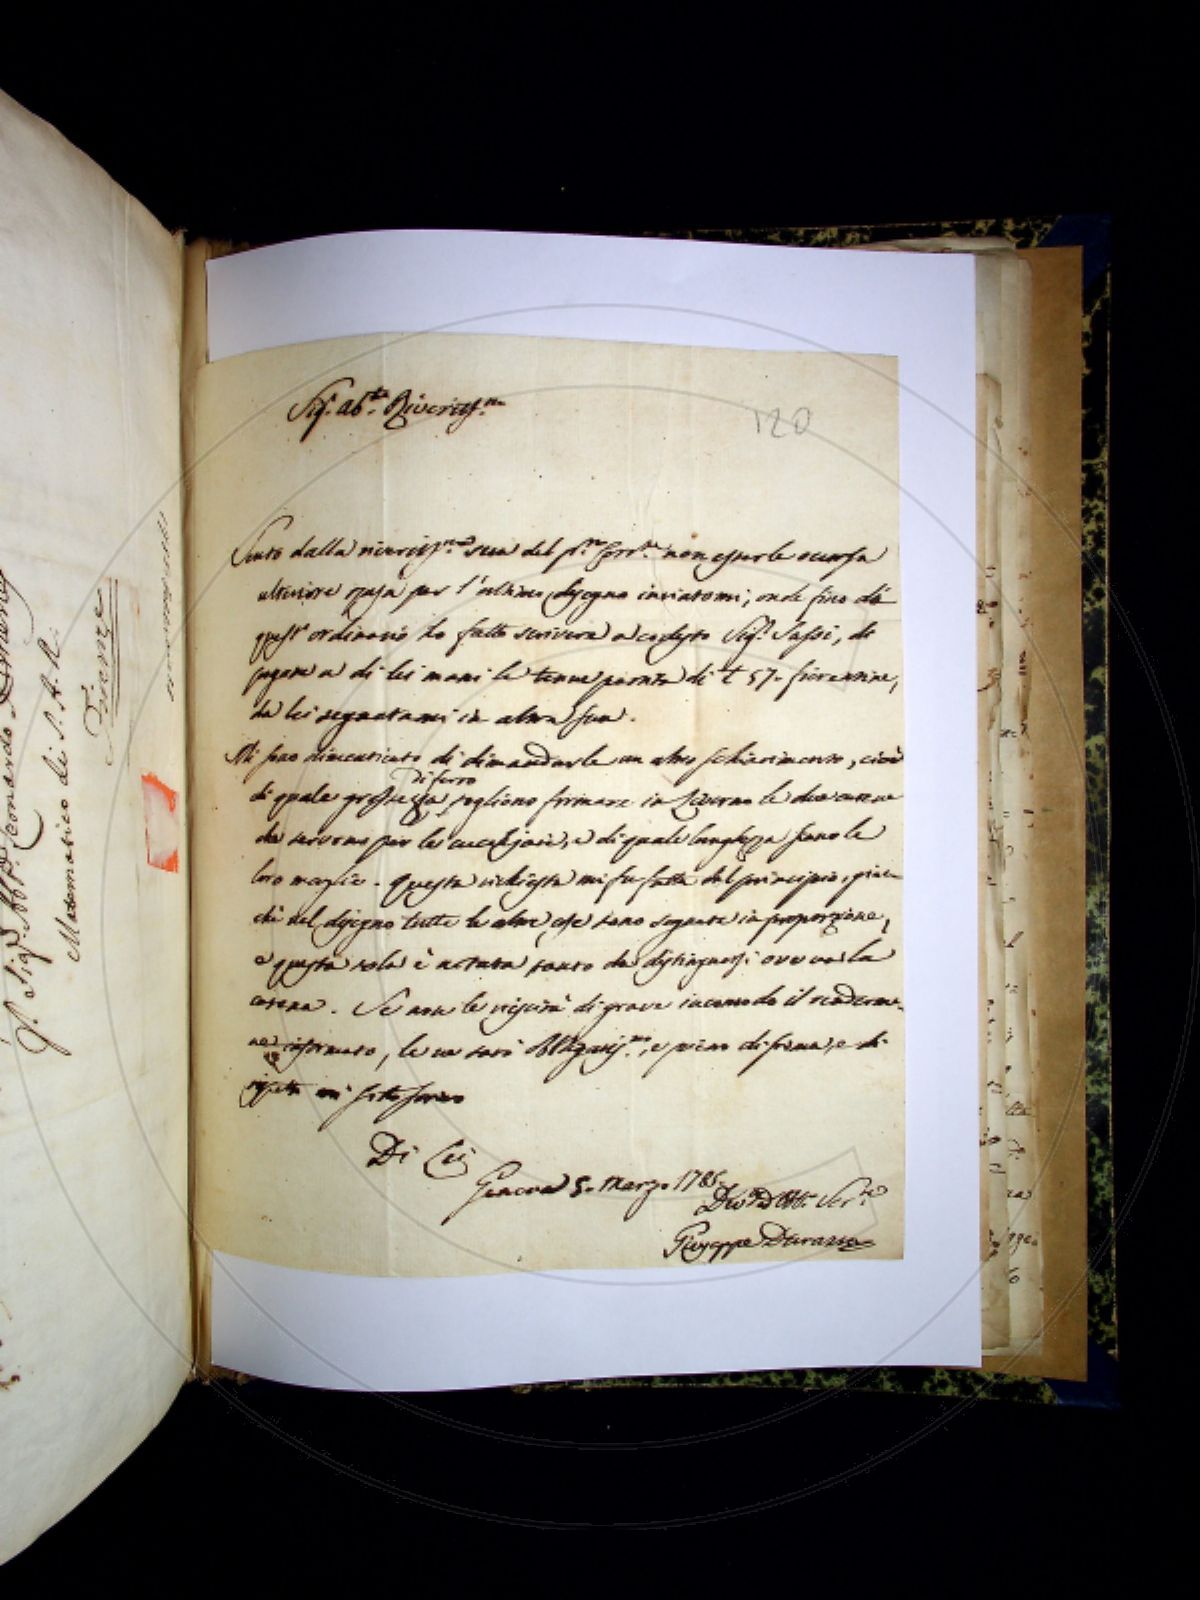 Sig.r Ab.te Riveritiss.mo
120
Sento dalla riveritiss.ma sua del p.mo corr.te non esserle occorsa
ulteriore spesa per l'ultimo disegno inviatomi; onde fino da
quest'ordinario ho fatto scrivere a codesto Sig.r Sassi, di
pagare a di lei mani le tenue partita di £ 57. fiorentine,
da lei segnatami in altra sua.
Mi sono dimenticato di dimandarle un altro schiarimento, cioè
di ferro
di quale grossezza, sogliono formare in Livorno le due catene
che servono per le e di quale lunghezza sono le
loro maglie. Questa richiesta mi fu fatta dal principio, giac-
chè nel disegno tutte le altre cose sono segnate in proporzione,
e questa sola è notata tanto da distinguersi ove va la
catena. Se non le riuscirà di grave incomodo il renderme-
ne informato, le ne sarò obbligatiss.mo, e pieno di stima, e di
rispetto mi sottoscrivo
Di Lei
Genova 5. Marzo 1785.
Div.mo Obb.mo Ser.re
Giuseppe Durazzo
Al Sig.r Abb.e Leonardo Ximenes
Matematico di S. A. R.
Firenze